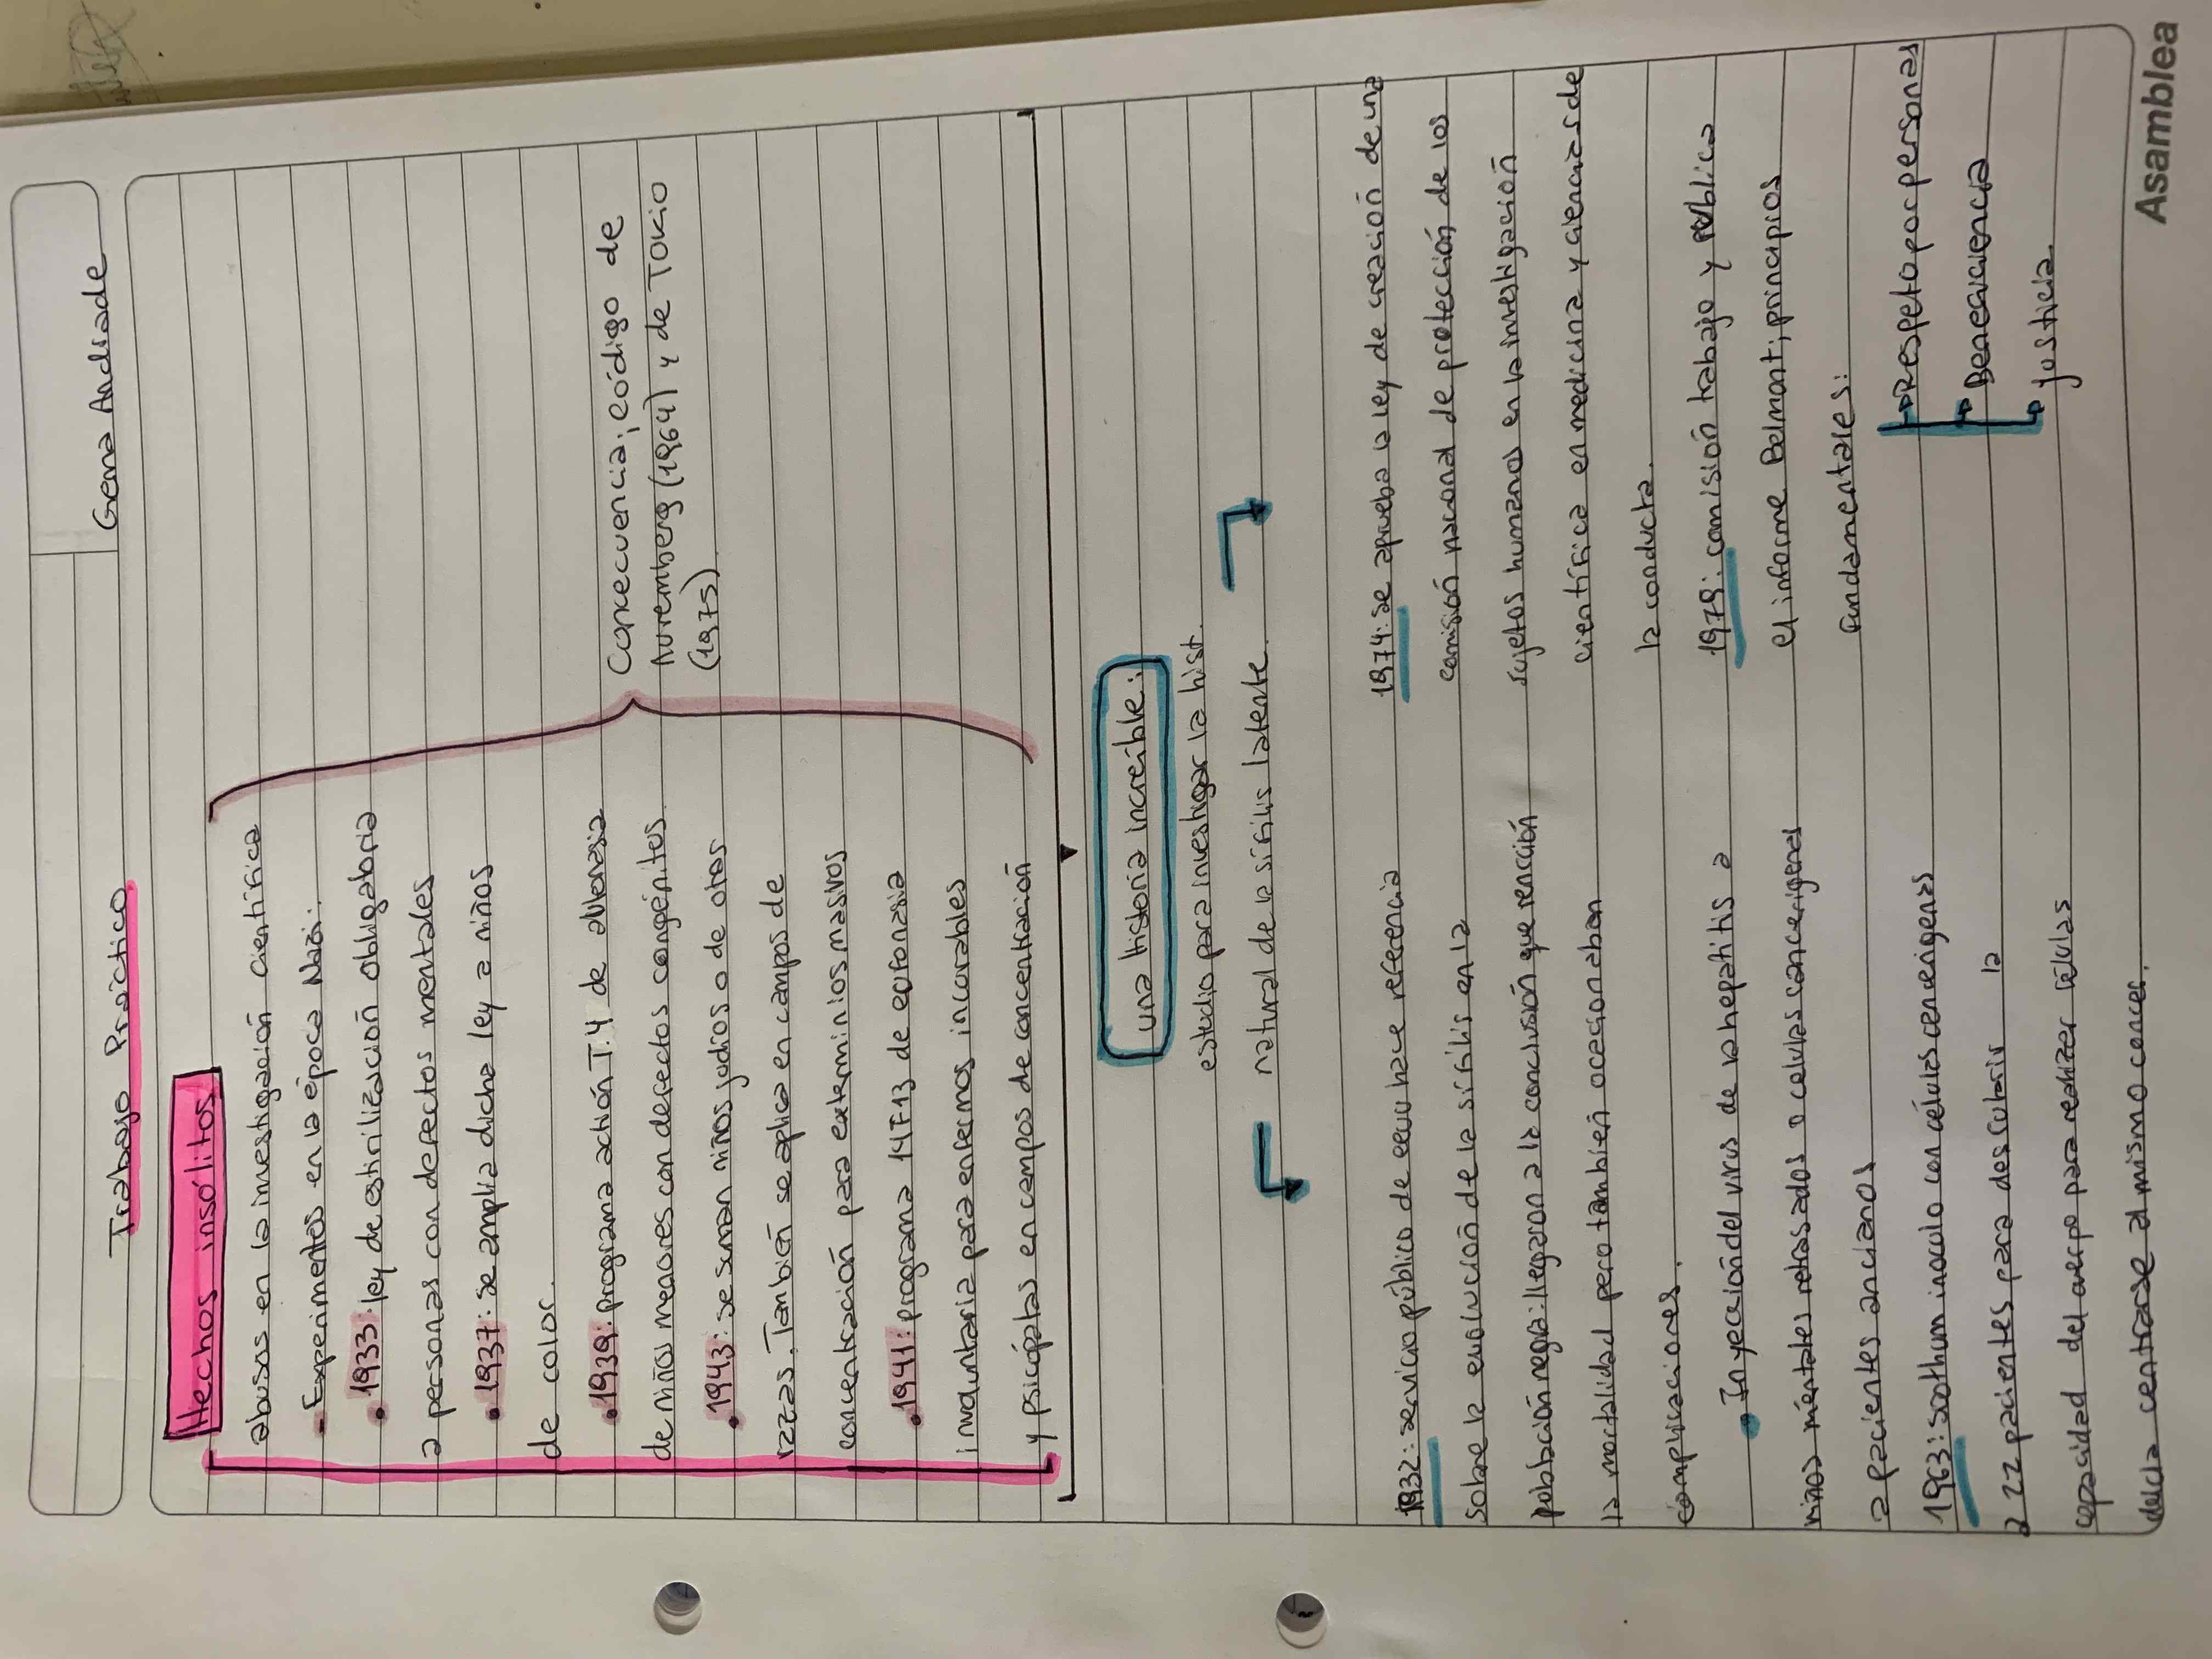 Gema Andrade
Trabajo Práctico
Hechos insólitos
abusos en la investigación científica
- Experimentos en la época Nazi:
• 1933: ley de estirilización obligatoria
a personas con defectos mentales
• 1937: se amplia dicha ley a niños
de color.
• 1939: programa actión T.4 de
de niños menores con defectos congénitos
• 1943: se suman niños judíos o de otas
razas. También se aplica en campos de
concentración para exterminios masivos
• 1941: programa 14F13 de eutonasia
involuntaria para enfermos incurables
y psicópatas en campos de concentración
Consecuencia; código de
Nuremberg (1964) y de Tokio
(1975)
una historia increible:
estudio para investigar la hist.
natural de la sífilis latente.
1932: servicio público de eeuu hace referencia
sobre la evolución de la sífilis en la
población negra: llegaron a la conclusión que
la mortalidad pero también ocacionaban
complicaciones.
• Inyección del virus de la hepatitis a
niños mentales retrasados o celulas cancerigenas
a pacientes ancianos
1963: sothum inoculo con células cancerigenas
a 22 pacientes para descubrir la
capacidad del cuerpo para realizar células
decia centrarse al mismo cancer.
1974: se aprueba la ley de creación de una
comisión nacional de protección de los
sujetos humanos en la investigación
científica en medicina y ciencias de
la conducta.
1978: comisión trabajo y publica
el informe Belmont; principios
Fundamentales:
Respeto por personas
Beneficiencia
justicia.
Asamblea